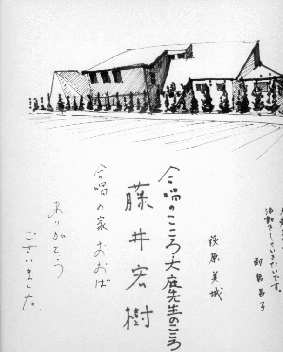 活動をしていきたいです。
荻原美城
合唱のこころ大庭先生のこころ
藤井宏樹
合唱の家おおば
ありがとう
ございました